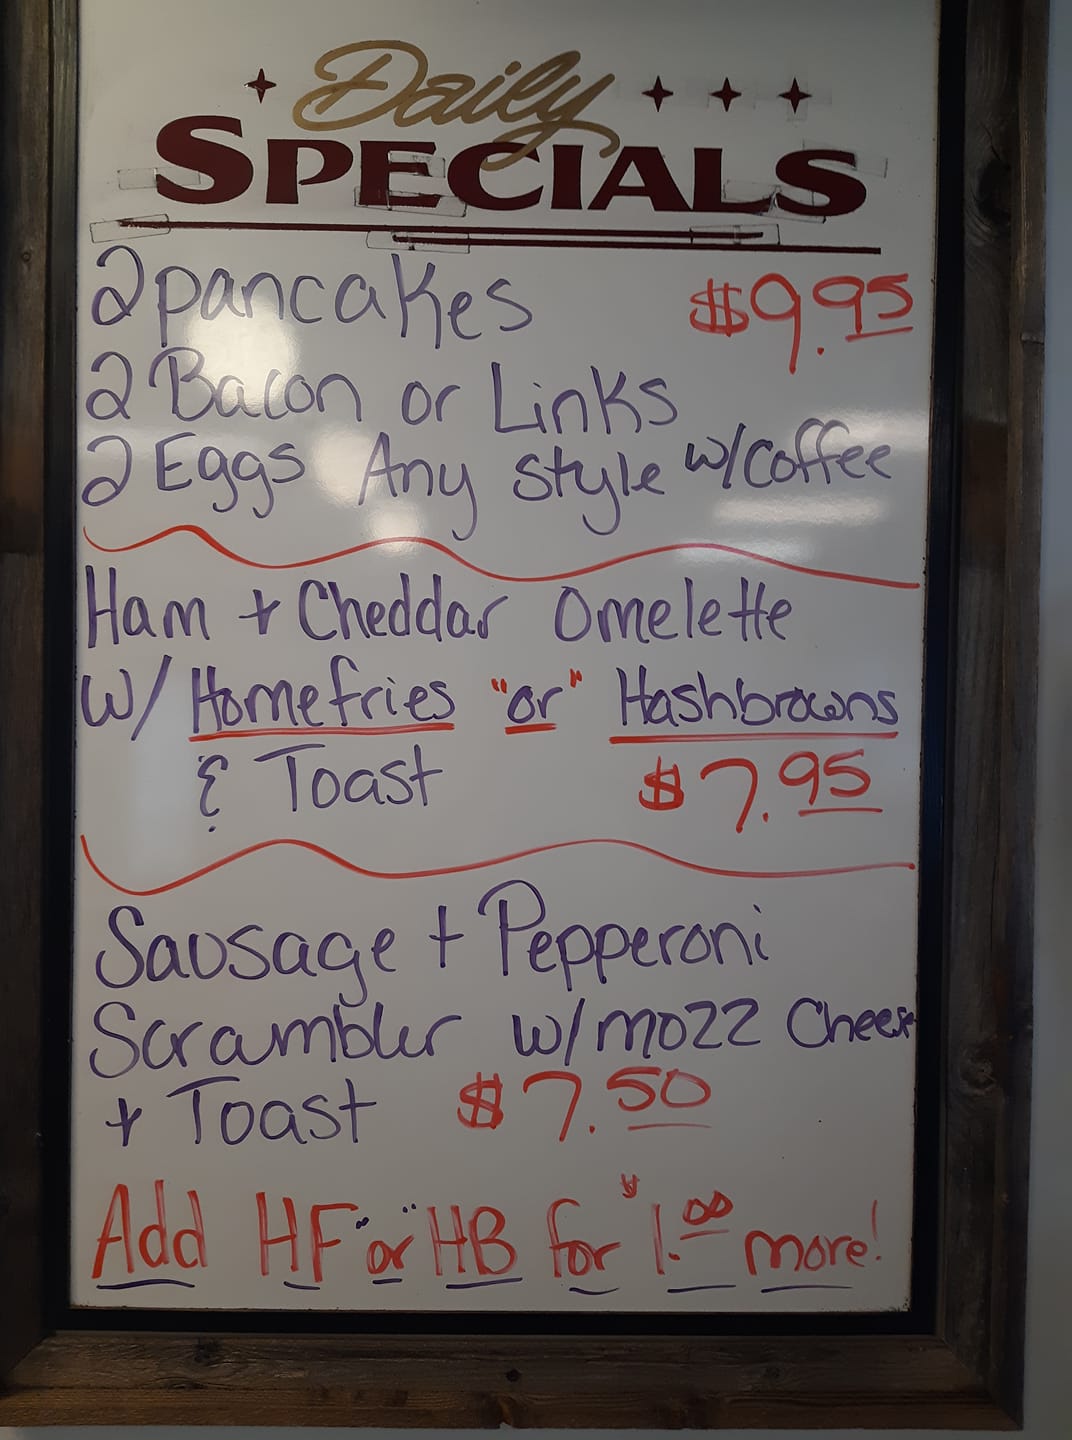 Daily
SPECIALS
2 pancakes $9.95
2 Bacon or Links
2 Eggs Any Style w/coffee
Ham + Cheddar Omelette
w/ Homefries "or" Hashbrowns
& Toast $7.95
Sausage + Pepperoni
Scrambler w/mozz Cheese
+ Toast $7.50
Add HF "or" HB for $1.00 more!